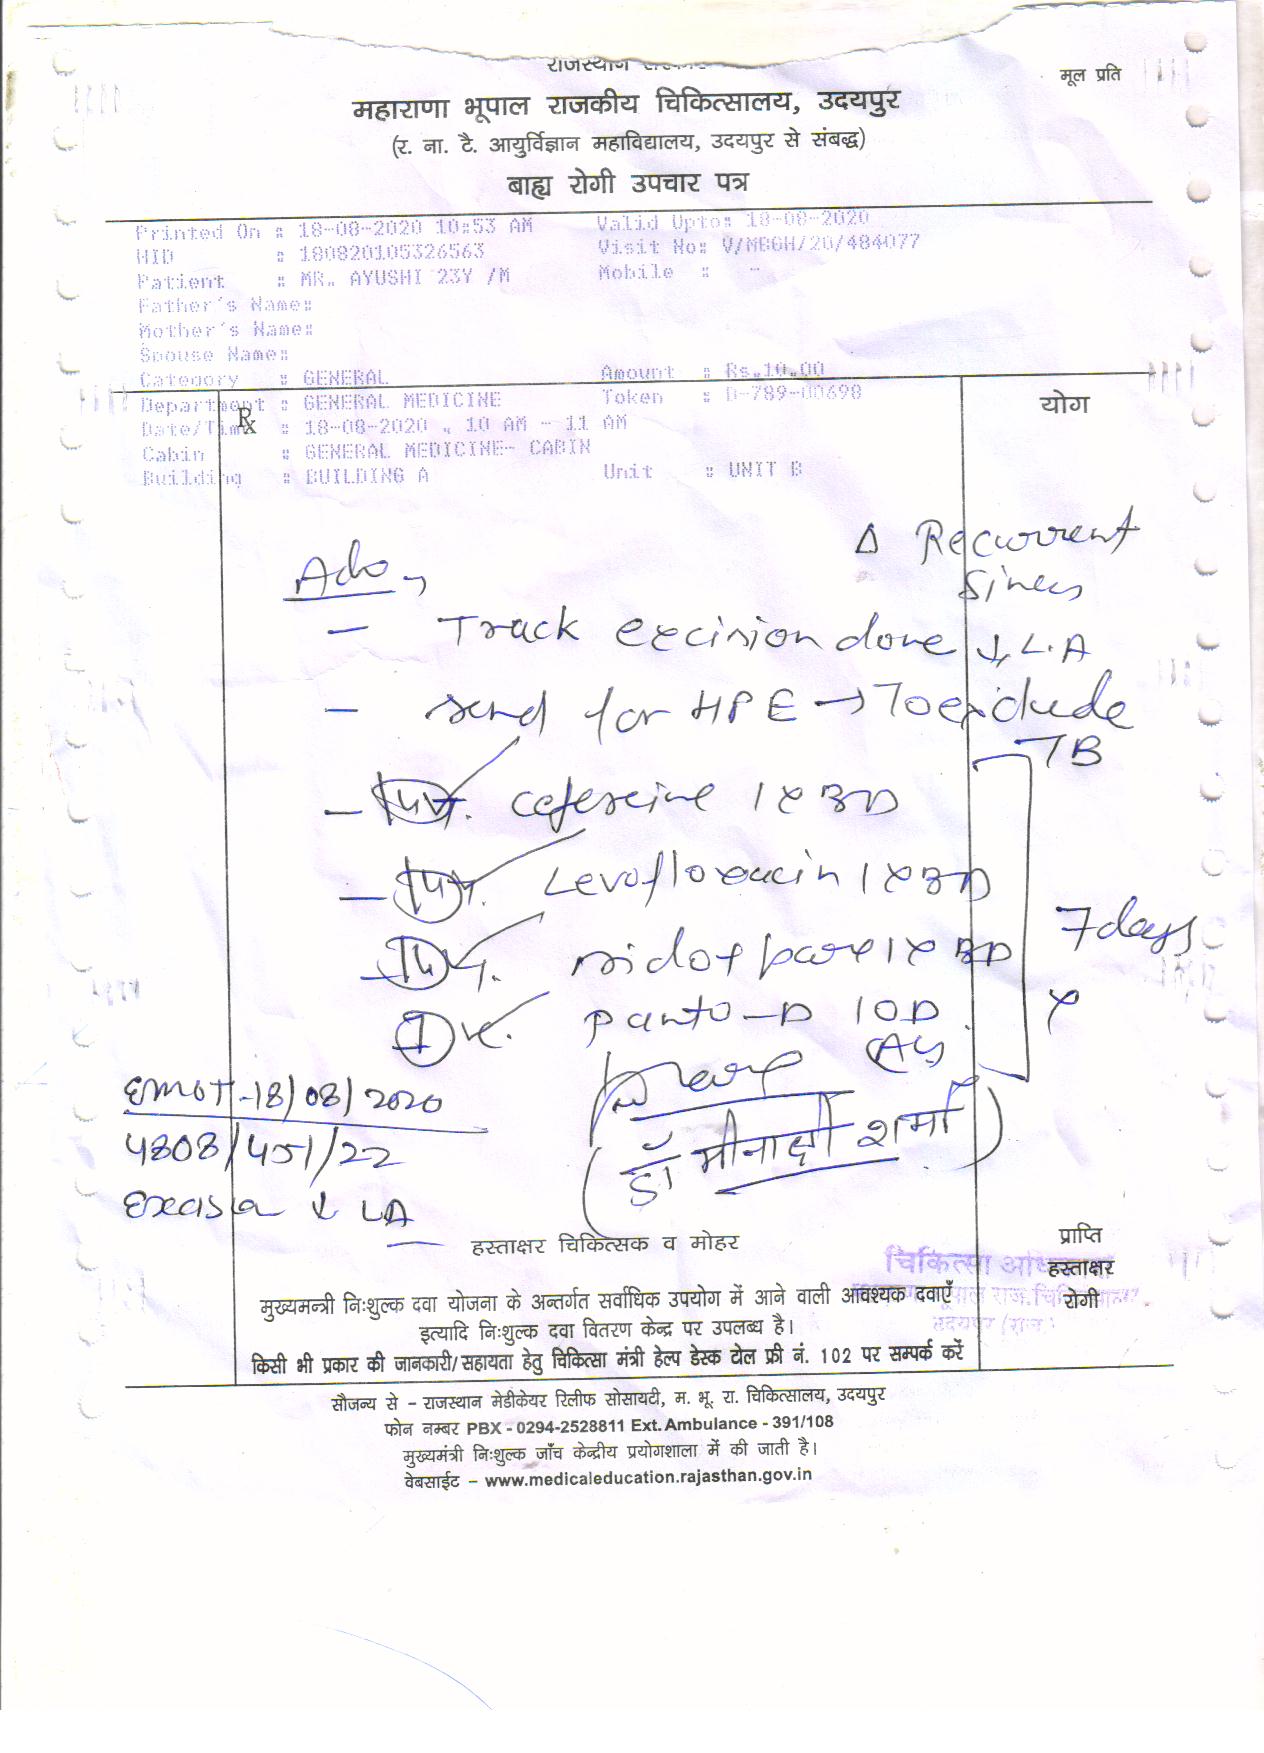 राजस्थान
मूल प्रति
महाराणा भूपाल राजकीय चिकित्सालय, उदयपुर
(र. ना. टै. आयुर्विज्ञान महाविद्यालय, उदयपुर से संबद्ध)
बाह्य रोगी उपचार पत्र
Printed On : 18-08-2020 10:53 AM Valid Upto: 18-08-2020
HID : 180820105326563 Visit No: V/MBGH/20/484077
Patient : MR. AYUSHI 23Y /M Mobile : -
Father's Name:
Mother's Name:
Spouse Name:
Category : GENERAL Amount : Rs.10.00
Department : GENERAL MEDICINE Token : D-789-00698
Rx
योग
Date/Time : 18-08-2020 , 10 AM - 11 AM
Cabin : GENERAL MEDICINE- CABIN
Building : BUILDING A Unit : UNIT B
Δ Recurrent
Sinus
Adv
- Track excision done ↓ L.A
- send for HPE → To exclude
TB
- 1 x BD
- Levofloxacin 1 x BD
1 x BD
7 days
Panto-D 1 OD
x
EMOT - 18/08/2020
4808/451/22
(डॉ मीनाक्षी शर्मा)
↓ LA
हस्ताक्षर चिकित्सक व मोहर
प्राप्ति
हस्ताक्षर
रोगी
उदयपुर (राज.)
मुख्यमन्त्री निःशुल्क दवा योजना के अन्तर्गत सर्वाधिक उपयोग में आने वाली आवश्यक दवाएँ
इत्यादि निःशुल्क दवा वितरण केन्द्र पर उपलब्ध है।
किसी भी प्रकार की जानकारी/सहायता हेतु चिकित्सा मंत्री हेल्प डेस्क टोल फ्री नं. 102 पर सम्पर्क करें
सौजन्य से – राजस्थान मेडीकेयर रिलीफ सोसायटी, म. भू. रा. चिकित्सालय, उदयपुर
फोन नम्बर PBX - 0294-2528811 Ext. Ambulance - 391/108
मुख्यमंत्री निःशुल्क जाँच केन्द्रीय प्रयोगशाला में की जाती है।
वेबसाईट – www.medicaleducation.rajasthan.gov.in